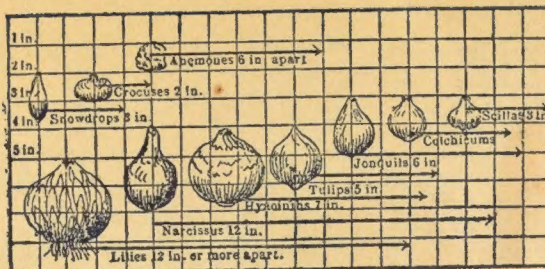 1 in.
Anemones 6 in apart
2 in.
Crocuses 2 in.
3 in.
Snowdrops 3 in.
Scillas 3 in.
4 in.
Colchicums
5 in.
Jonquils 6 in
Tulips 5 in.
Hyacinths 7 in.
Narcissus 12 in.
Lilies 12 in. or more apart.